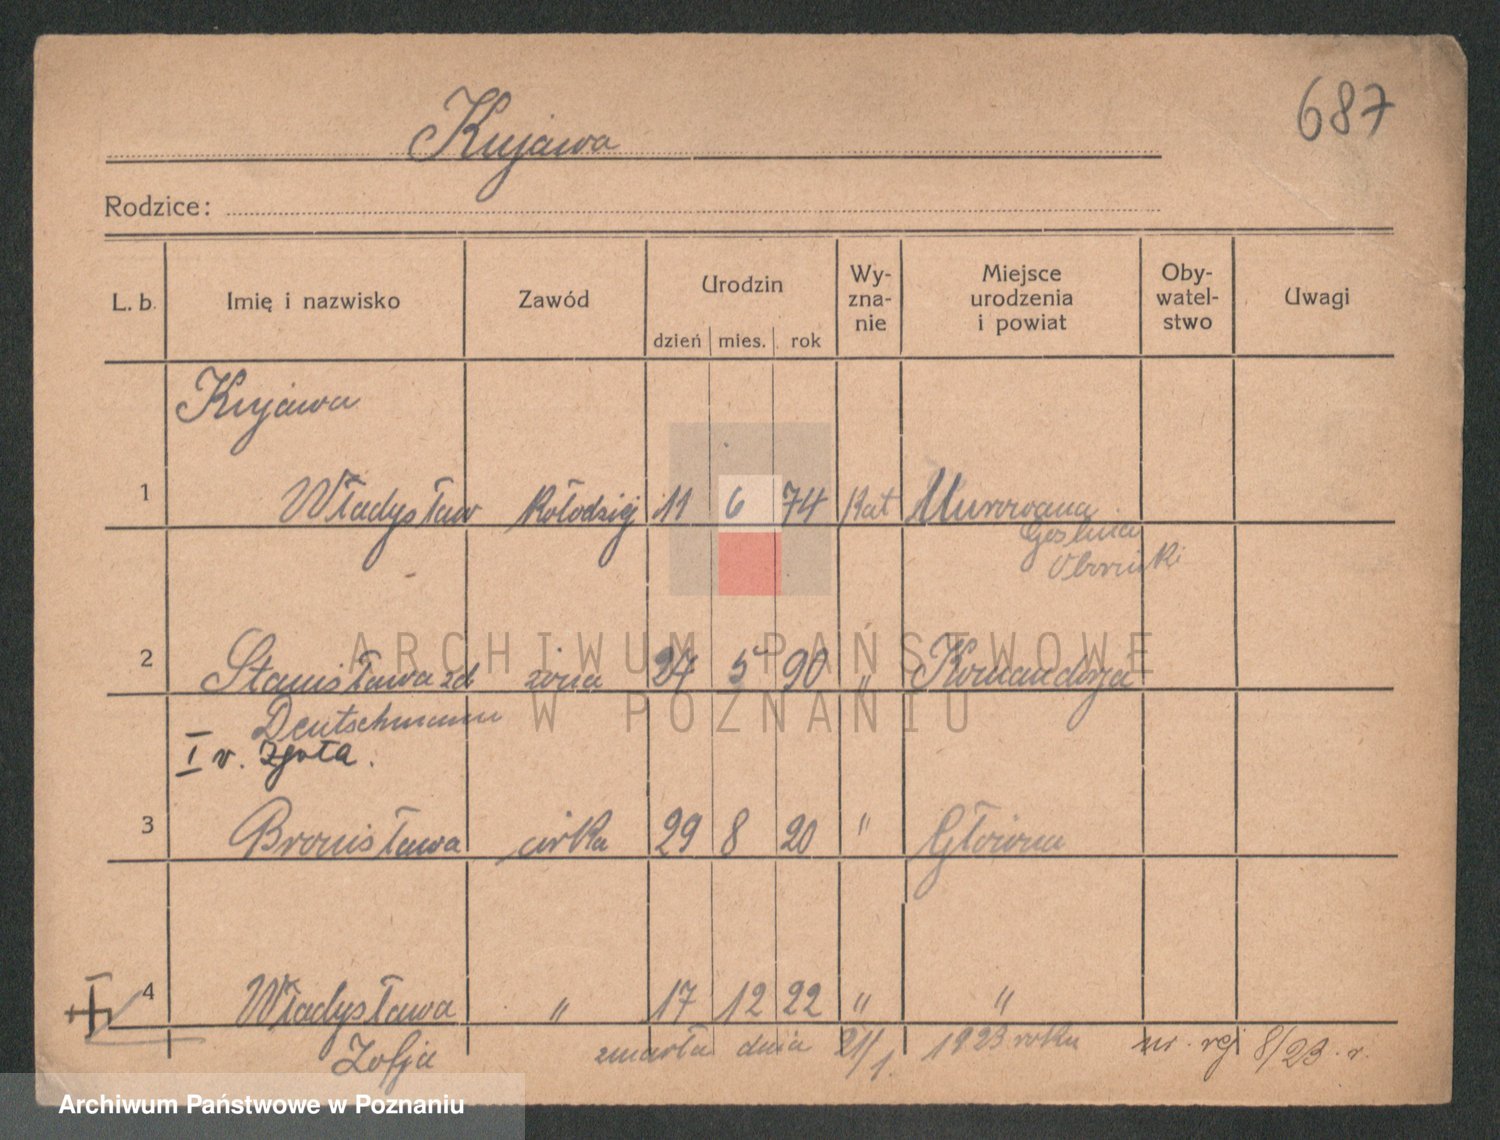 687
Kujawa
Rodzice:
L. b. Imię i nazwisko Zawód Urodzin dzień mies. rok Wy-zna-nie Miejsce urodzenia i powiat Oby-watel-stwo Uwagi
Kujawa
1 Władysław kołodziej 11 6 74 kat Murowana
Goslina
Obornik
2 Stanisława zd żona 27 5 90 " Komandorja
Deutschmann
I v. Zgoła.
3 Bronisława córka 29 8 20 " Główna
4 Władysława " 17 12 22 " "
Zofja zmarła dnia 21/1. 1923 roku nr. rej 8/23. r.
ARCHIWUM PAŃSTWOWE
W POZNANIU
Archiwum Państwowe w Poznaniu